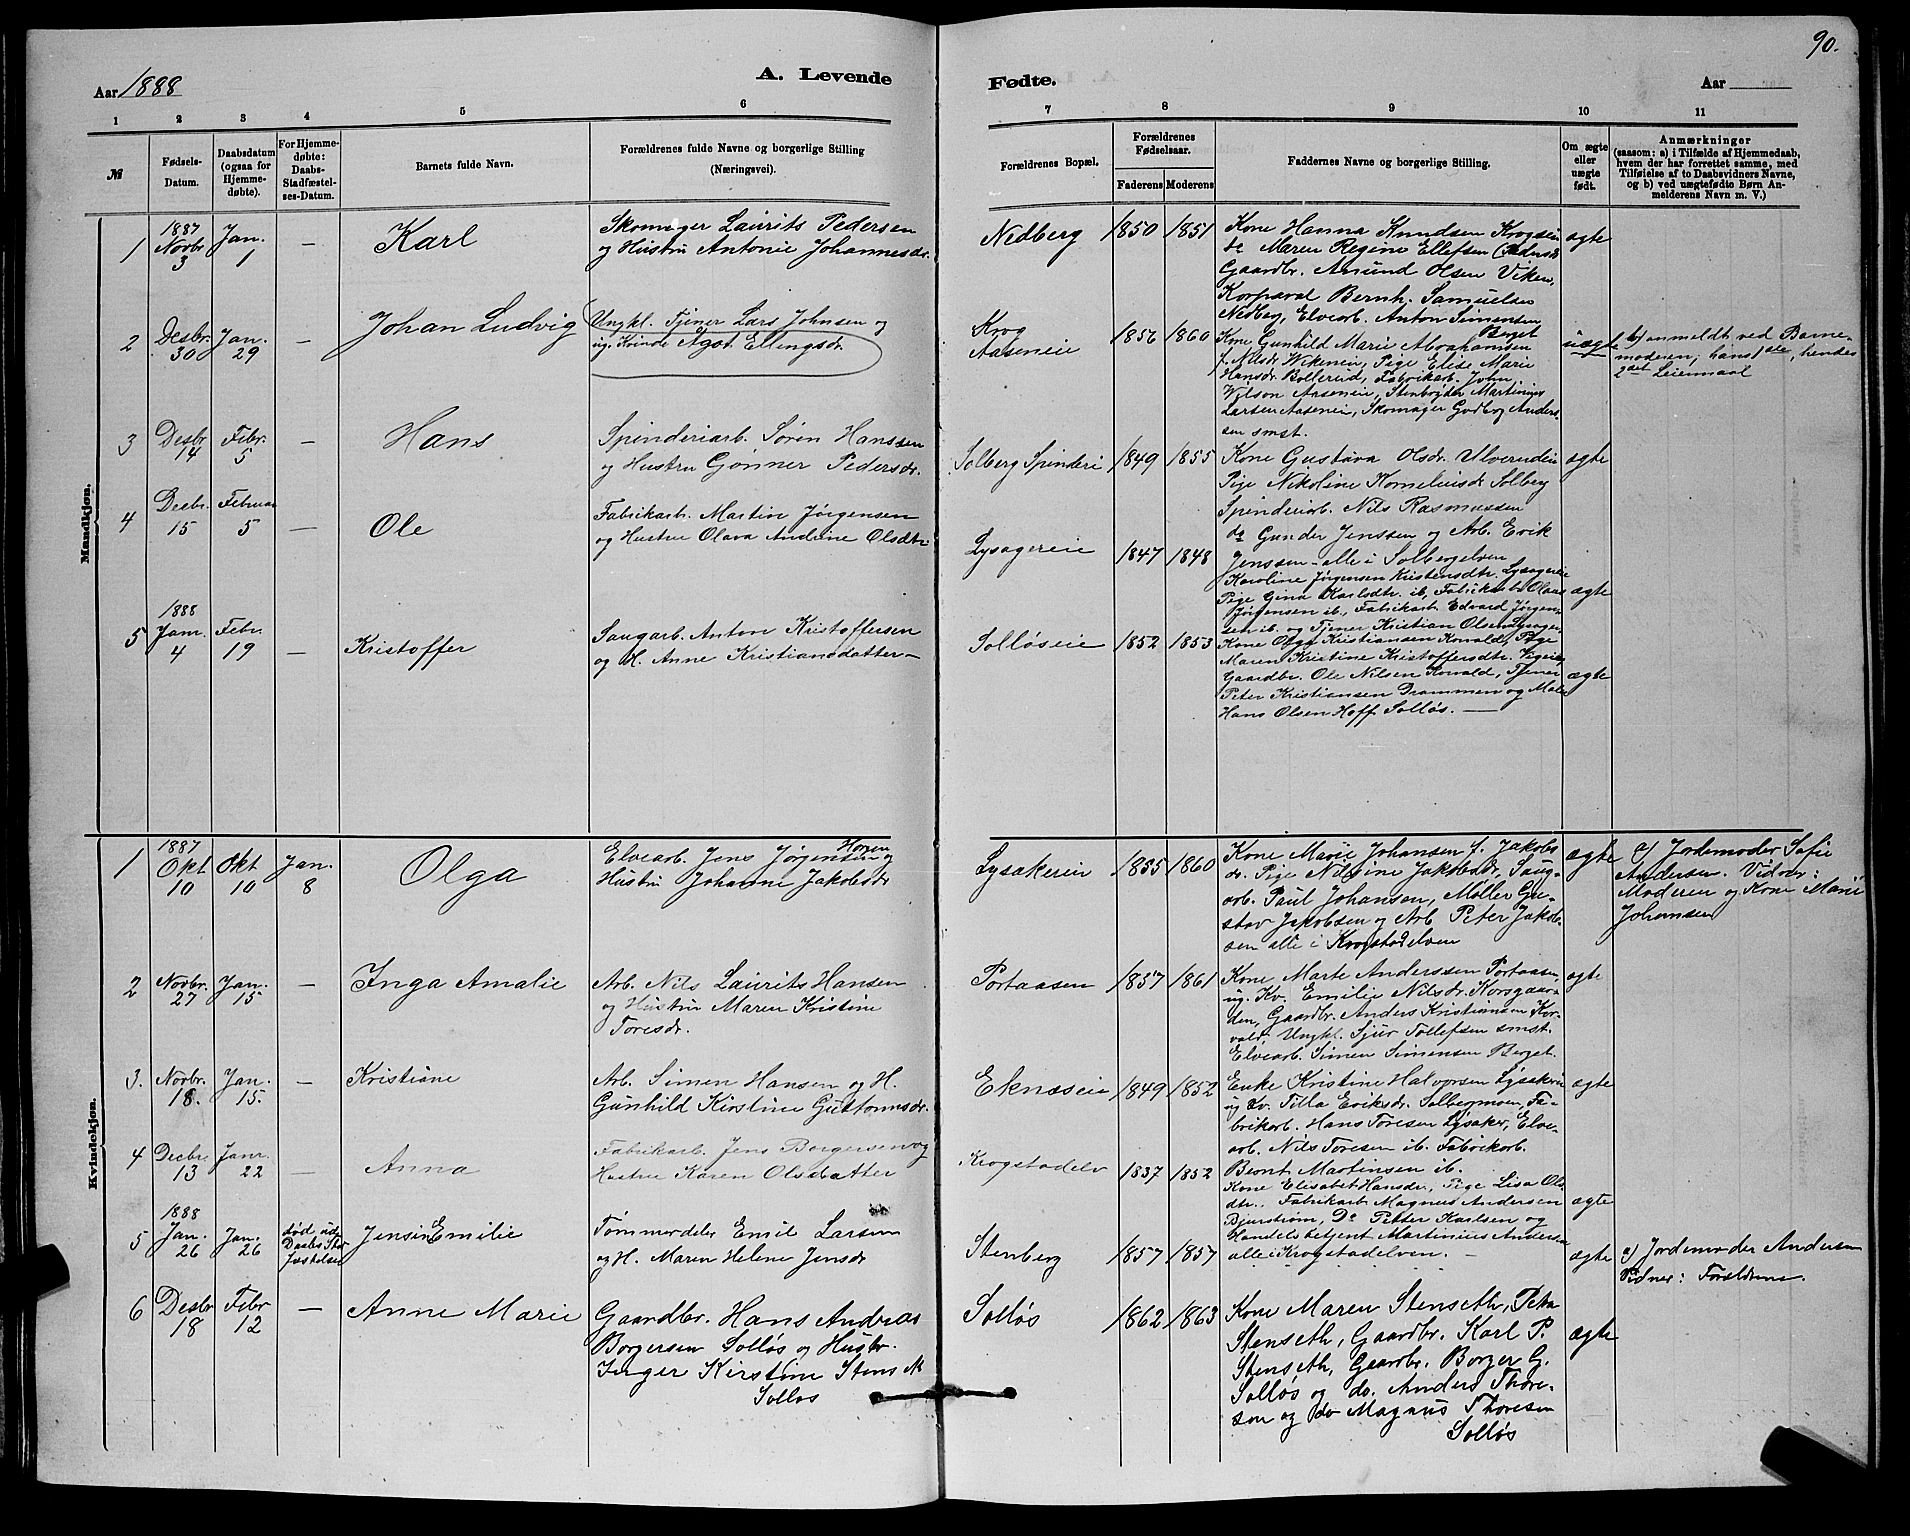 90.
Aar 1888
A. Levende
Fødte.
Aar
1 2 3 4 5 6 7 8 9 10 11
№
Fødsels-
Datum.
Daabsdatum
(ogsaa for
Hjemme-
døbte).
For Hjemme-
døbte:
Daabs-
Stadfæstel-
ses-Datum.
Barnets fulde Navn.
Forældrenes fulde Navne og borgerlige Stilling
(Næringsvei).
Forældrenes Bopæl.
Forældrenes
Fødselsaar.
Faderens Moderens
Faddernes Navne og borgerlige Stilling.
Om ægte
eller
uægte
født.
Anmærkninger
(saasom: a) i Tilfælde af Hjemmedaab,
hvem der har forrettet samme, med
Tilføielse af to Daabsvidners Navne,
og b) ved uægtefødte Børn An-
melderens Navn m. V.)
Mandkjøn.
1
1887
Novbr.
3
Jan.
1
—
Karl
Skomager Laurits Pedersen
og Hustru Antonie Johannesdr.
Nedberg
1850
1851
Kone Hanna Knudsen Krogseie
do Maren Regine Ellefsen
Gaardbr. Amund Olsen Viken,
Korporal Bernh. Samuelsen
Nedberg, Elvearb. Anton Simensen
Berget
ægte
2
Desbr.
30
Jan.
29
—
Johan Ludvig
Ungkl. Tjener Lars Johnsen og
ug. Kvinde Agot Ellingsdr.
Krog
Aaseneie
1856
1860
Kone Gunhild Marie Abrahamsen
f. Nilsdr Vikeneie, Pige Elise Marie
Hansdr. Bollerud, Fabrikarb. John
Wilson Aaseneie, Stenbryder Martinius
Larsen Aaseneie, Skomager Godberg Anders-
sen smst.
uægte
b) anmeldt ved Barne-
moderen; hans 1ste, hendes
2det Leiermaal
3
Desbr
14
Febr.
5
—
Hans
Spinderiarb. Søren Hanssen
og Hustru Gønner Pedersdr.
Solberg Spinderi
1849
1855
Kone Gustava Olsdr. Ulverudeie
Pige Nikoline Korneliusdr Solberg
Spinderiarb. Nils Rasmussen
do Gunder Jenssen og Arb. Erik
Jenssen - alle i Solbergelven
ægte
4
Desbr.
15
Februar
5
—
Ole
Fabrikarb. Martin Jørgensen
og Hustru Olava Andrine Olsdtr
Lysagereie
1847
1848
Karoline Jørgensen Kristensdtr. Lysagereie
Pige Gina Karlsdtr. ib, Fabrikarb Olaus
Jørgensen ib., Fabrikarb Edvard Jørgen-
sen ib. og Tjener Kristian Olsen Lysager.
ægte
5
1888
Jan.
4
Febr.
19
—
Kristoffer
Saugarb. Anton Kristoffersen
og H. Anne Kristiansdatter —
Solløseie
1852
1853
Kone Olga Kristiansen Korvald, Pige
Maren Kristine Kristoffersdtr. Vigeie,
Gaardbr. Ole Nilsen Korvald, Tjener
Peter Kristiansen Drammen og Maler
Hans Olsen Hoff Solløs. —
ægte
Kvindekjøn.
1
1887
Okt
10
Okt
10
Jan.
8
Olga
Elvearb. Jens Jørgensen Horgen og
Hustru Johanne Jakobsdr
Lysakereie
1855
1860
Kone Marie Johansen f. Jakobs
dr. Pige Nilsine Jakobsdr, Saug-
arb. Paul Johansen, Møller Gu-
stav Jakobsen og Arb Peter Jakob-
sen alle i Krogstadelven
ægte
a) Jordemoder Sofie
Andersen. Vidner:
Moderen og Kone Marie
Johansen
2
Novbr.
27
Jan.
15
—
Inga Amalie
Arb. Nils Laurits Hansen
og Hustru Maren Kristine
Toresdr.
Portaasen
1857
1861
Kone Marte Anderssen Portaasen,
ug. Kv. Emilie Nilsdr. Korsgaar-
den, Gaardbr. Anders Kristiansen Kor-
vald, Ungkl. Sjur Tollefsen smst.
Elvearb. Simen Simensen Berget.
ægte
3.
Novbr.
18.
Jan.
15.
—
Kristiane
Arb. Simen Hansen og H.
Gunhild Kirstine Guttormsdr.
Eknæseie
1849
1852
Enke Kristine Halvorsen Lysakereie
ug Kv. Tilla Eriksdr. Solbergmoen, Fa-
brikarb. Hans Toresen Lysaker, Elve-
arb. Nils Toresen ib. Fabrikarb.
Bernt Martinsen ib.
ægte
4
Decbr
13
Janr.
22
—
Anna
Fabrikarb. Jens Borgersen og
Hustru Karen Olsdatter
Krogstadelv
1837
1852
Kone Elisabet Hansdr., Pige Lisa Ols
dtr., Fabrikarb Magnus Andersen
Bjurstrøm, Do Petter Karlsen og
Handelsbetjent Martinius Andersen
alle i Krogstadelven. —
ægte
5
1888
Jan.
26
Jan.
26
død uden
Daabs Stad
fæstelse
Jensine Emilie
Tømmerdeler Emil Larsen
og H. Maren Helene Jensdr
Stenberg
1857
1857
ægte
a) Jordemoder Andersen
Vidner: Forældrene.
6
Desbr
18
Febr
12
—
Anne Marie
Gaardbr. Hans Andreas
Borgersen Solløs og Hustr.
Inger Kirstine Stenseth
Solløs
Solløs
1862
1863
Kone Maren Stenseth, Petra
Stenseth, Gaardbr. Karl P.
Stenseth, Gaardbr. Borger G.
Solløs og do. Anders Thore-
sen og do Magnus Thoresen
Solløs
ægte